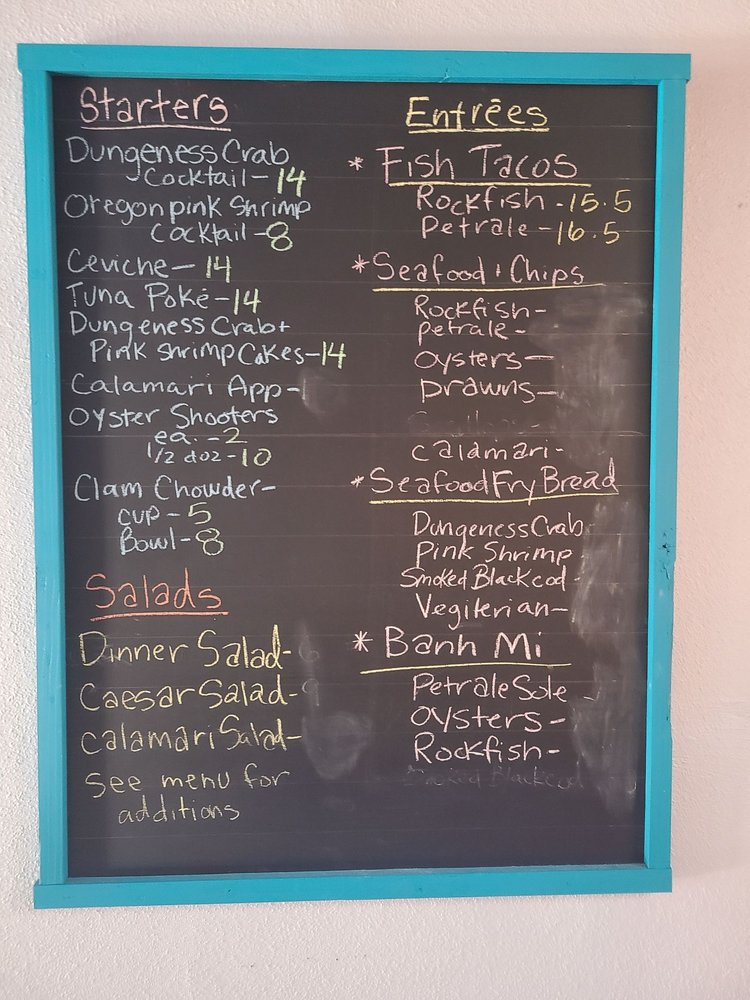 Starters
Dungeness Crab
Cocktail - 14
Oregon pink Shrimp
cocktail - 8
Ceviche - 14
Tuna Poké - 14
Dungeness Crab +
Pink Shrimp Cakes - 14
Calamari App -
Oyster Shooters
ea. - 2
1/2 doz - 10
Clam Chowder -
cup - 5
Bowl - 8
Salads
Dinner Salad -
Caesar Salad -
Calamari Salad -
See menu for
additions
Entrées
* Fish Tacos
Rockfish - 15.5
Petrale - 16.5
* Seafood + Chips
Rockfish -
petrale -
Oysters -
Prawns -
calamari -
* Seafood Fry Bread
Dungeness Crab
Pink Shrimp
Smoked Blackcod -
Vegiterian -
* Banh Mi
Petrale Sole -
Oysters -
Rockfish -
Smoked Blackcod